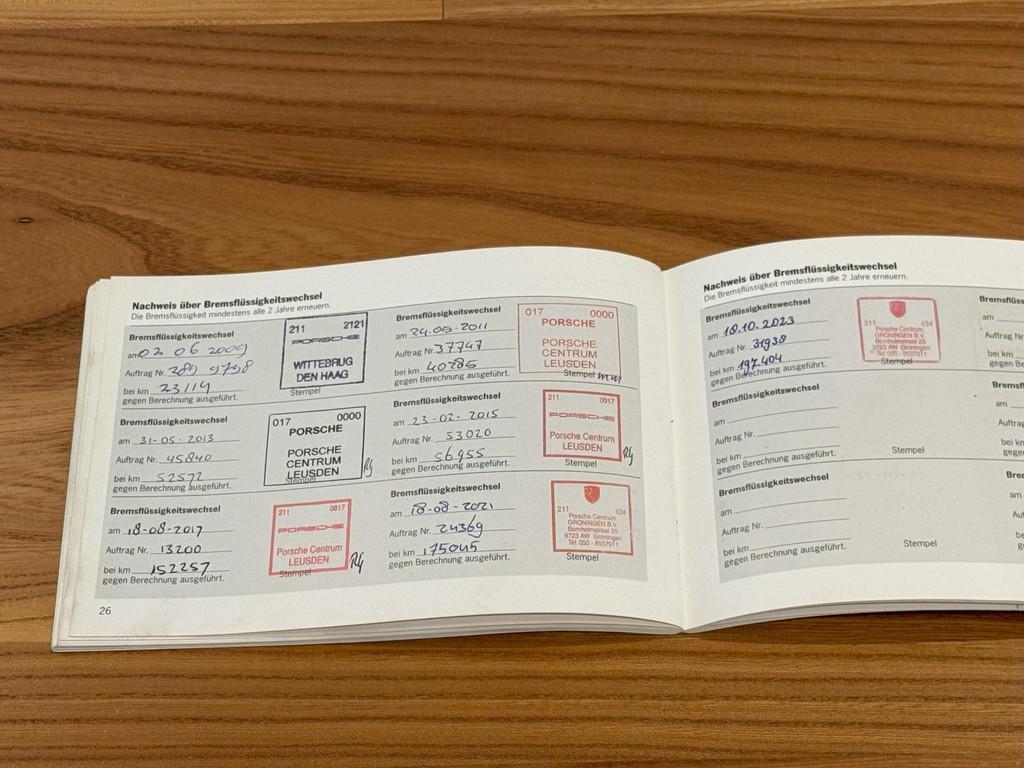 Nachweis über Bremsflüssigkeitswechsel
Die Bremsflüssigkeit mindestens alle 2 Jahre erneuern.
Bremsflüssigkeitswechsel
am 03 06 2009
Auftrag Nr.
bei km 23114
gegen Berechnung ausgeführt.
211 2121
PORSCHE
WITTEBRUG
DEN HAAG
Stempel
Bremsflüssigkeitswechsel
am 24-05-2011
Auftrag Nr. 37747
bei km 40285
gegen Berechnung ausgeführt.
017 0000
PORSCHE
PORSCHE
CENTRUM
LEUSDEN
Stempel
Bremsflüssigkeitswechsel
am 31-05-2013
Auftrag Nr. 45840
bei km 52572
gegen Berechnung ausgeführt.
017 0000
PORSCHE
PORSCHE
CENTRUM
LEUSDEN
Stempel
Bremsflüssigkeitswechsel
am 23-02-2015
Auftrag Nr. 53020
bei km 56955
gegen Berechnung ausgeführt.
211 0017
PORSCHE
Porsche Centrum
LEUSDEN
Stempel
Bremsflüssigkeitswechsel
am 18-08-2017
Auftrag Nr. 13200
bei km 152257
gegen Berechnung ausgeführt.
211 0017
PORSCHE
Porsche Centrum
LEUSDEN
Stempel
Bremsflüssigkeitswechsel
am 18-08-2021
Auftrag Nr. 24369
bei km 175045
gegen Berechnung ausgeführt.
211 434
Porsche Centrum
GRONINGEN B.V.
Bornholmstraat 25
9723 AW Groningen
Tel. 050 - 8537911
Stempel
26
Nachweis über Bremsflüssigkeitswechsel
Die Bremsflüssigkeit mindestens alle 2 Jahre erneuern.
Bremsflüssigkeitswechsel
am 18.10.2023
Auftrag Nr. 31938
bei km 197.404
gegen Berechnung ausgeführt.
211 434
Porsche Centrum
GRONINGEN B.V.
Bornholmstraat 25
9723 AW Groningen
Tel. 050 - 8537911
Stempel
Bremsflüssigkeitswechsel
am
Auftrag Nr.
bei km
gegen Berechnung ausgeführt.
Stempel
Bremsflüssigkeitswechsel
am
Auftrag Nr.
bei km
gegen Berechnung ausgeführt.
Stempel
am
bei km
am
bei km
am
bei km